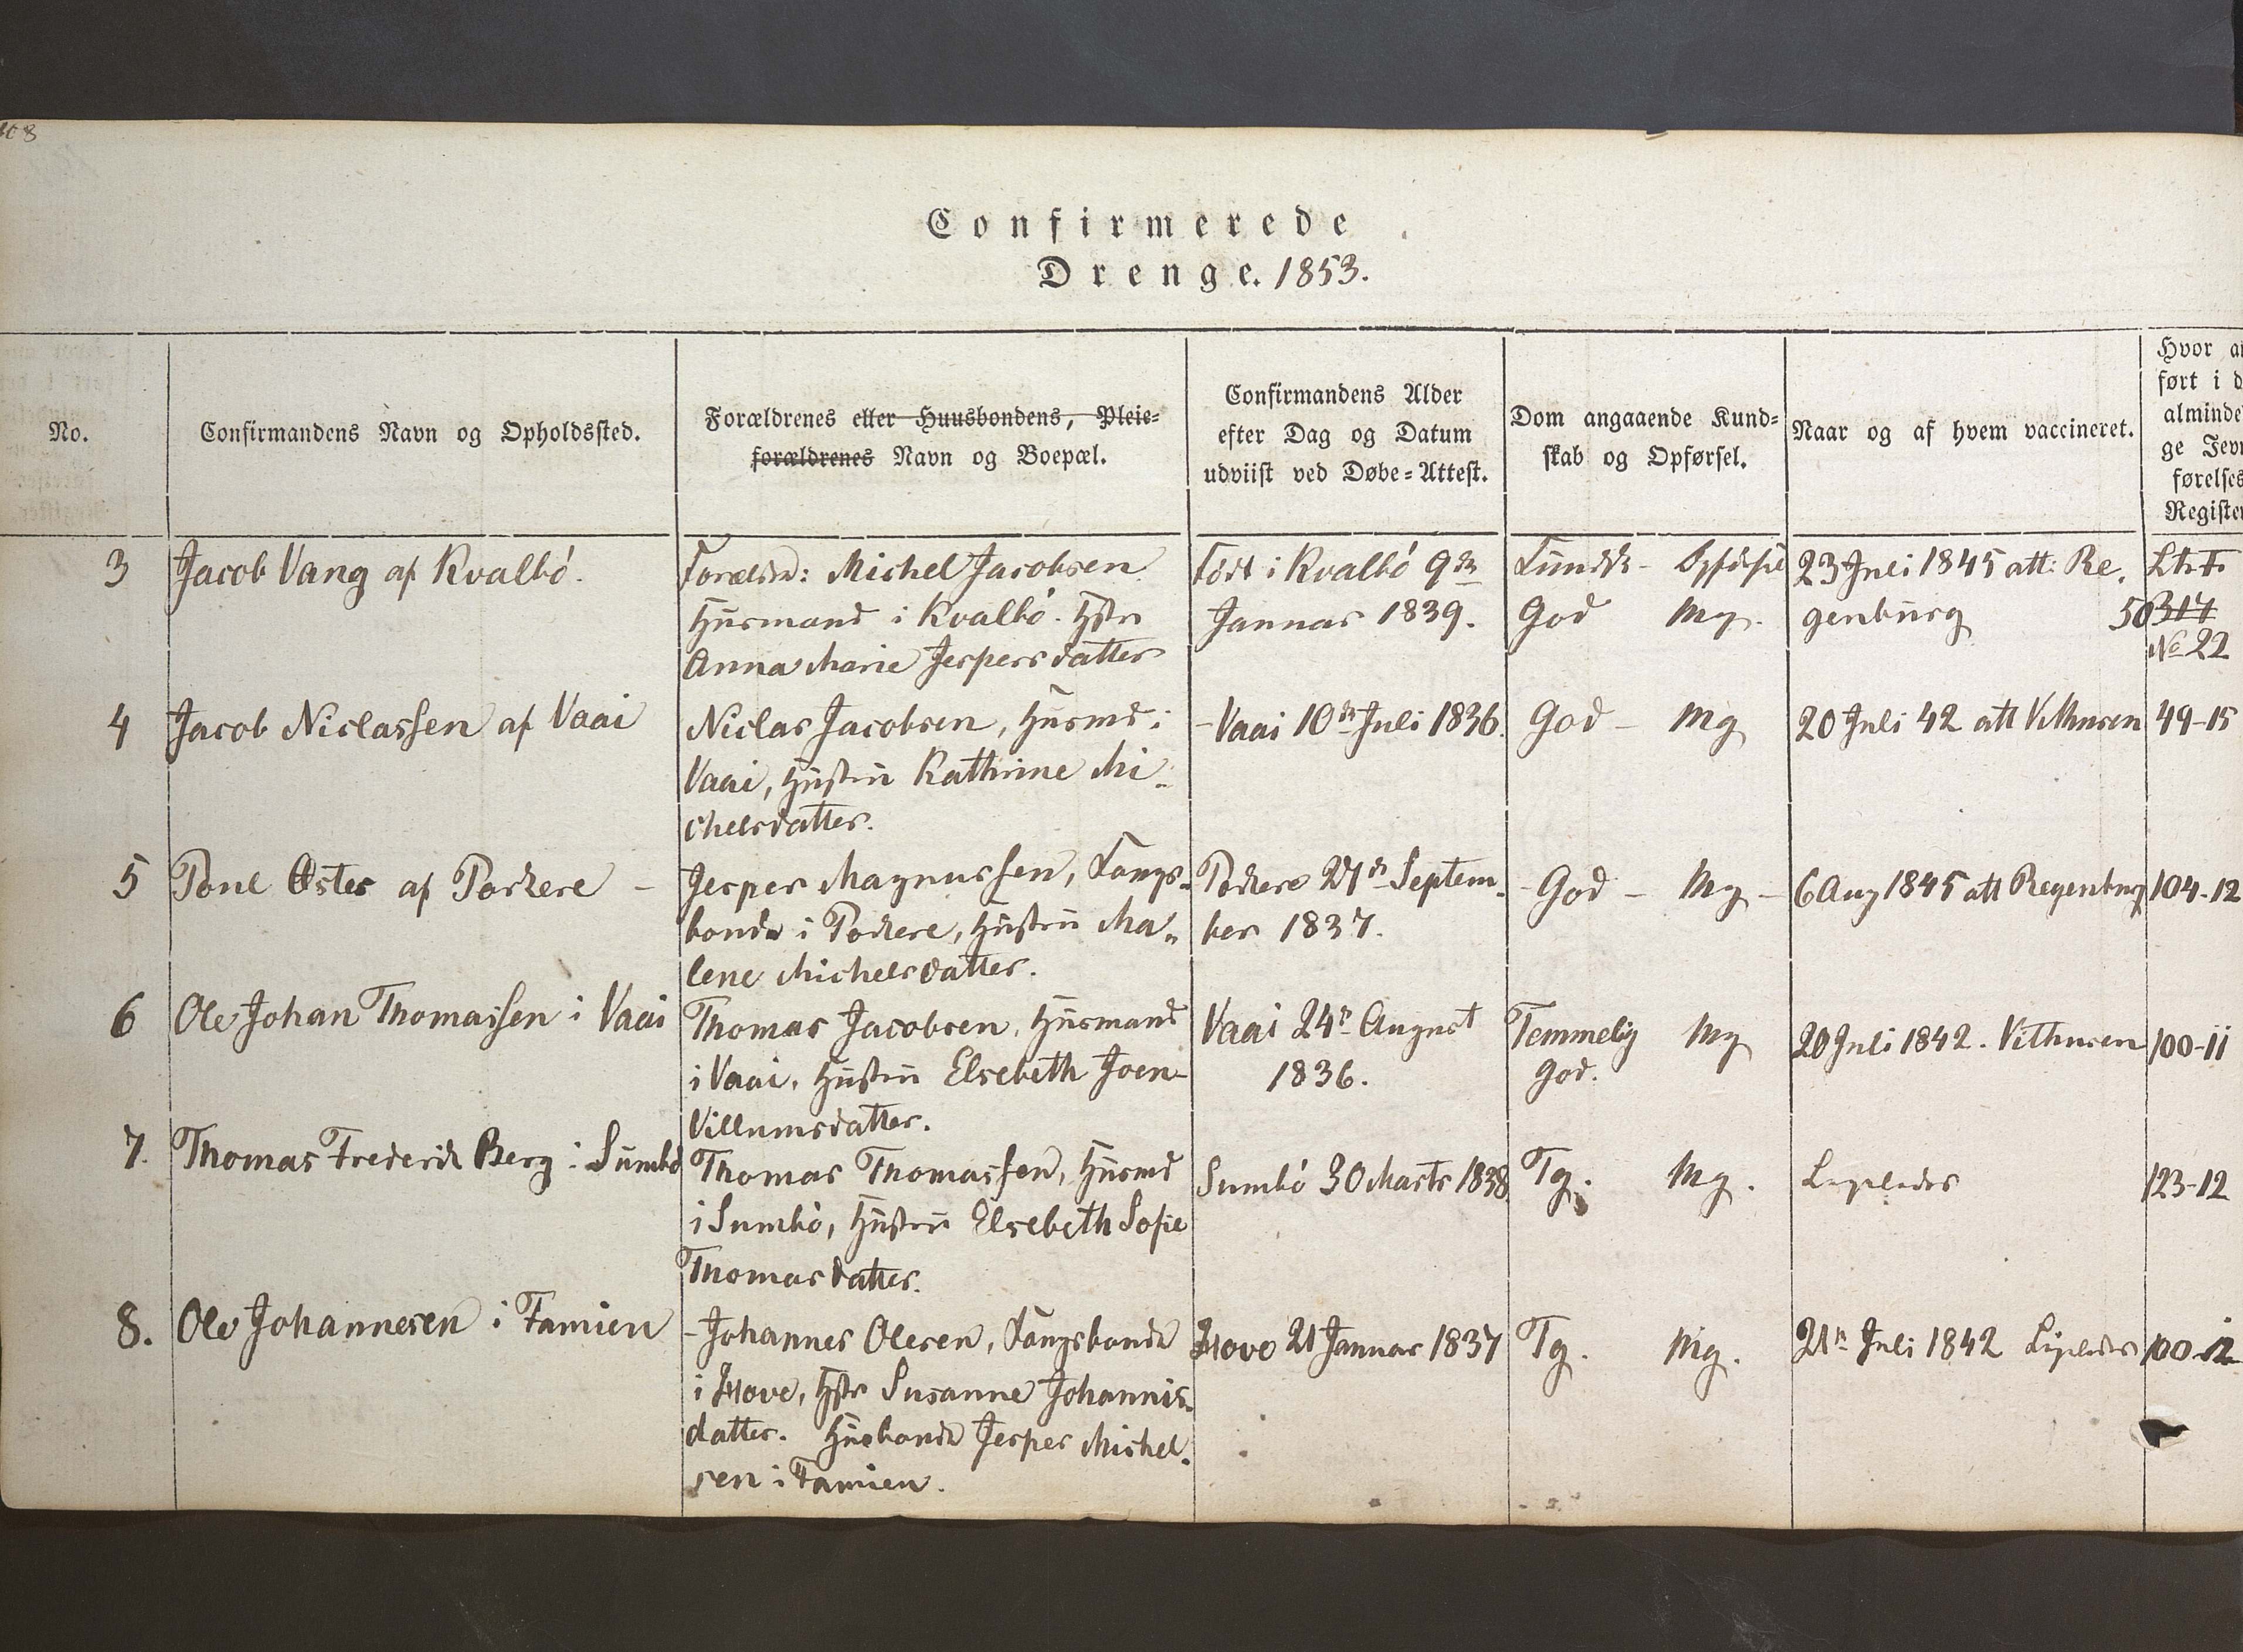 108
Confirmerede
Drenge. 1853.
No.
Confirmandens Navn og Opholdssted.
Forældrenes eller Huusbondens, Pleie=
forældrenes Navn og Boepæl.
Confirmandens Alder
efter Dag og Datum
udviist ved Døbe=Attest.
Dom angaaende Kund=
skab og Opførsel.
Naar og af hvem vaccineret.
Hvor an
ført i d
alminde
ge Jevn
førelses
Register
3
Jacob Vang af Kvalbó.
Foreldr: Michel Jacobsen
Husmand i Kvalbó. Hstr
Anna Marie Jespersdatter
Födt i Kvalbó 9de
Januar 1839.
Kundsk- Opförsel
God Mg.
23 Juli 1845 att: Re.
genburg
50 317
No 22
4
Jacob Niclassen af Vaai
Niclas Jacobsen, Husmd i
Vaai, Hustru Kathrine Mi„
chelsdatter.
- Vaai 10de Juli 1836.
God - Mg
20 Juli 42 att Vithusen
49-15
5
Poul Øster af Porkere -
Jesper Magnussen, Kongs„
bonde i Porkere, Hustru Ma„
lene Michelsdatter.
Porkere 27de Septem„
ber 1837.
- God - Mg -
6 Aug 1845 att Regenburg
104-12
6
Ole Johan Thomassen i Vaai
Thomas Jacobsen, Husmand
i Vaai, Hustru Elsebeth Joen
Villumsdatter.
Vaai 24de August
1836.
Temmelig Mg
God.
20 Juli 1842. Vithusen
100-11
7.
Thomas Frederik Berg i Sumbó
Thomas Thomassen, Husmd
i Sumbó, Hustru Elsebeth Sofie
Thomasdatter.
Sumbó 30 Marts 1838
Tg. Mg.
123-12
8.
Ole Johannesen i Famien
- Johannes Olesen, Kongsbonde
i Hove, Hstr Susanne Johannis„
datter. Husbonde Jesper Michel„
sen i Famien.
Hove 21 Januar 1837
Tg. Mg.
21de Juli 1842
100-12